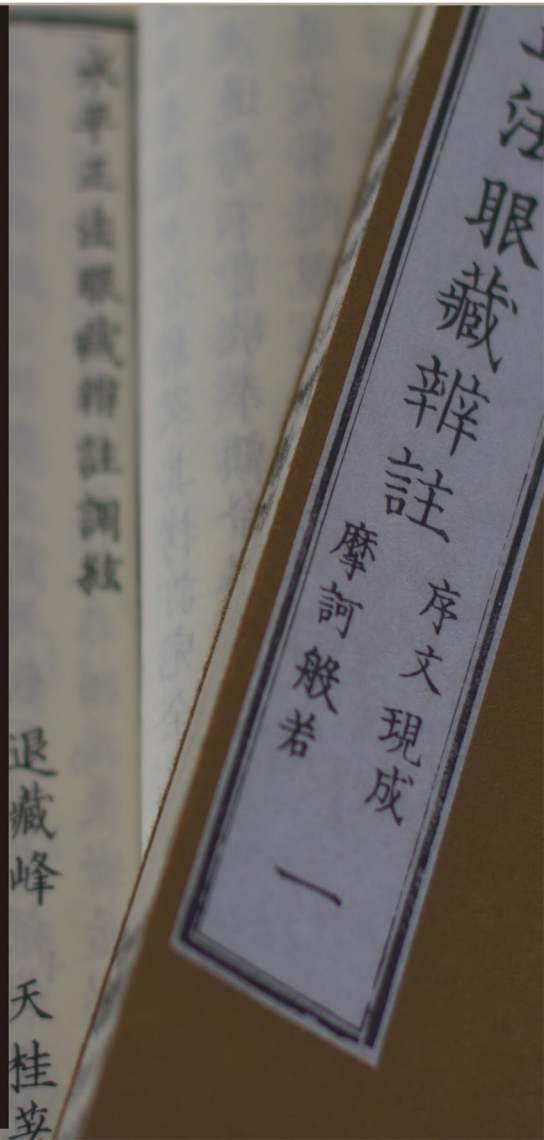 正法眼藏辨註
序文 現成
摩訶般若
一
永平正法眼藏辨註調絃
退藏峰 天桂